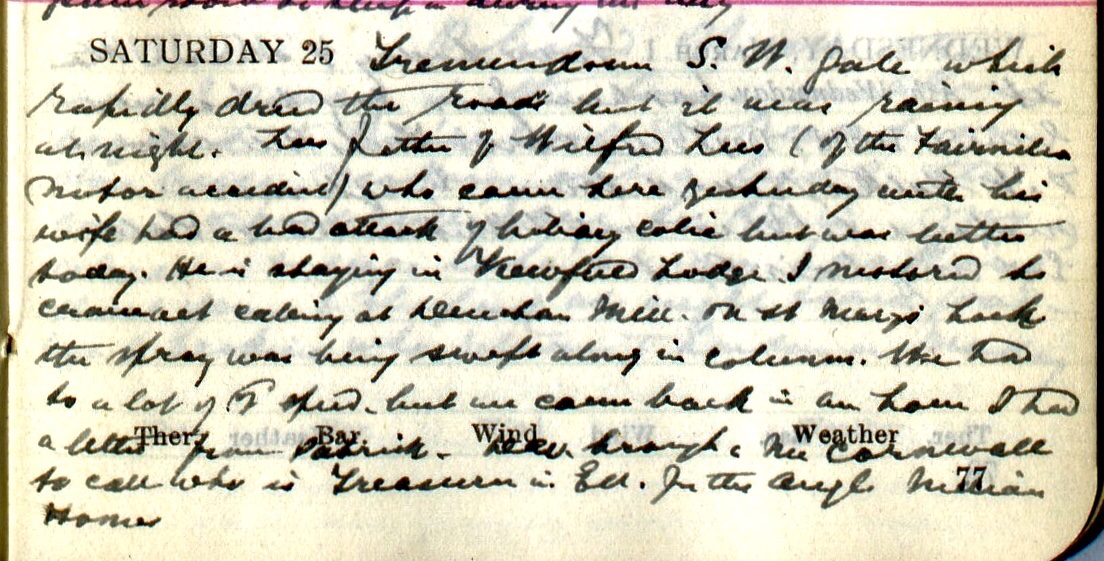 SATURDAY 25 Tremendous S. W. gale which
rapidly dried the roads but it was raining
at night. Lees father of Wilfred Lees (of the
Motor accident) who came here yesterday with his
wife had a bad attack of biliary colic but was better
today. He is staying in Lodge. I motored to
calling at Mill. On St Mary's Loch
the spray was being swept along in columns. We had
to a lot of speed. but we came back in an hour I had
a letter from Patrick. brought Mr Cornwall
Ther. Bar. Wind Weather
to call who is Treasurer in Ed. for the Mission
77
Homes